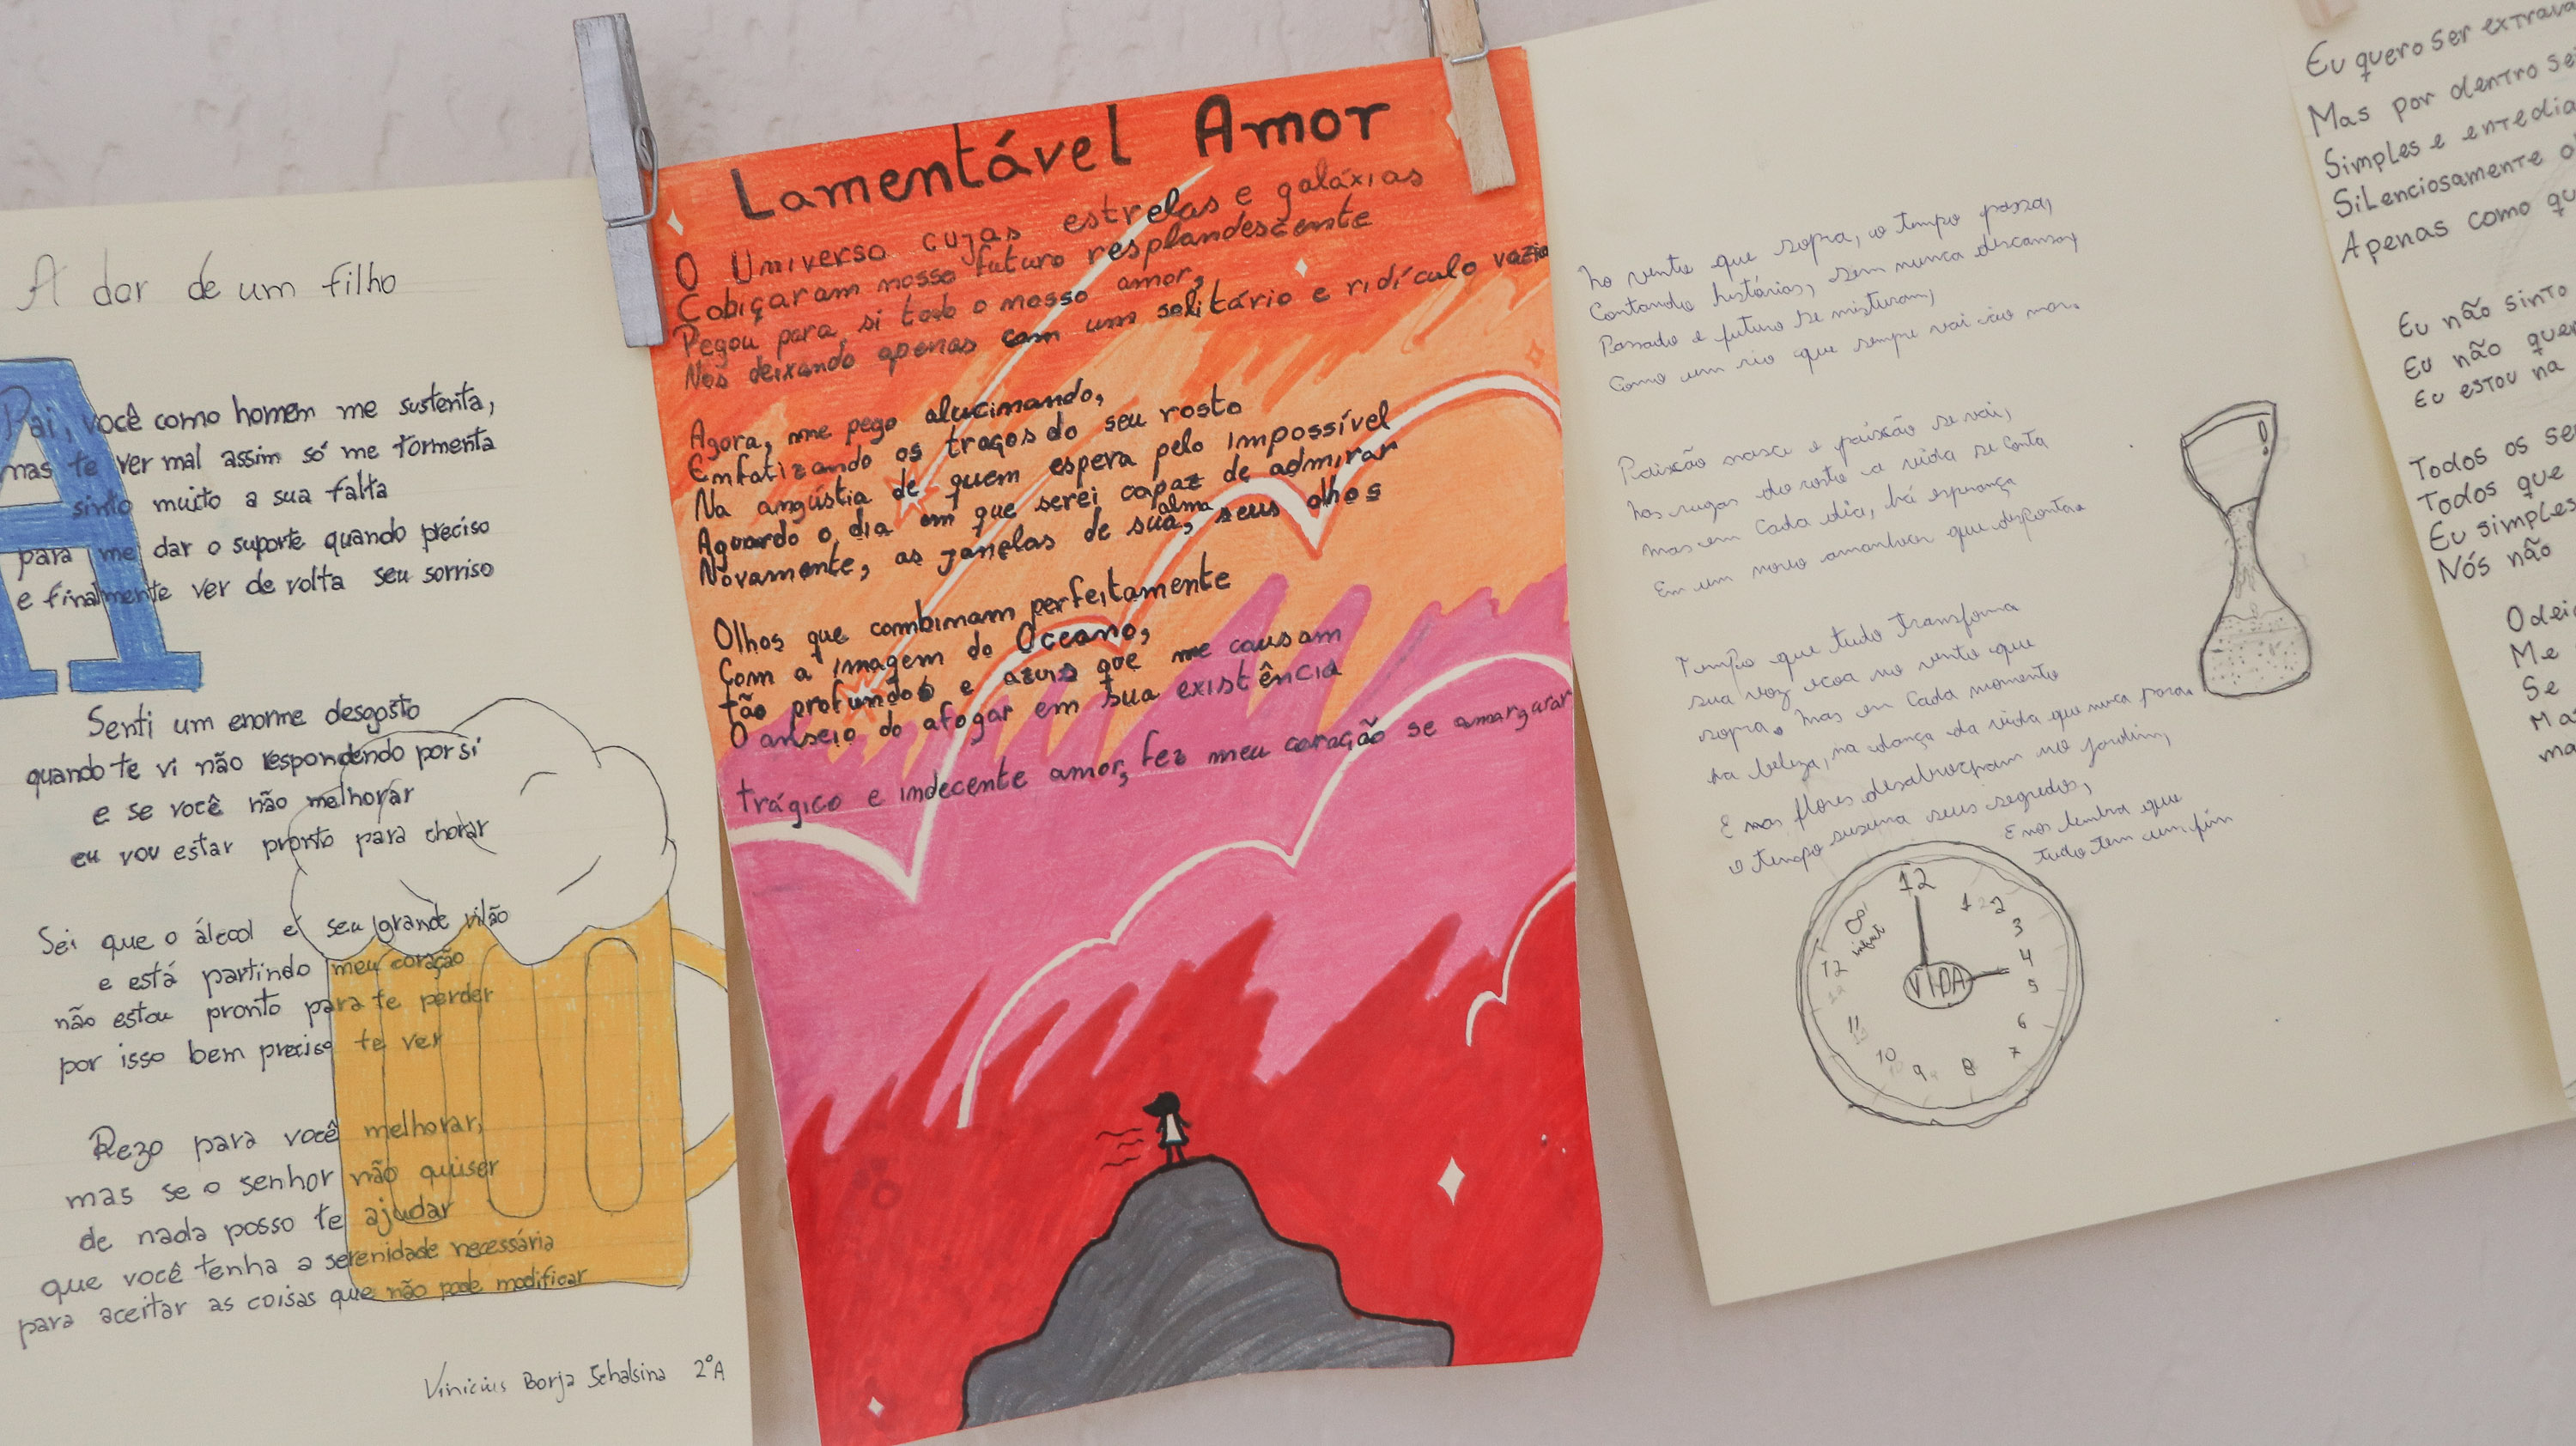 A dor de um filho
A
Pai, você como homem me sustenta,
mas te ver mal assim só me tormenta
sinto muito a sua falta
para me dar o suporte quando preciso
e finalmente ver de volta seu sorriso
Senti um enorme desgosto
quando te vi não respondendo por si
e se você não melhorar
eu vou estar pronto para chorar
Sei que o álcool é seu grande vilão
e está partindo meu coração
não estou pronto para te perder
por isso bem preciso te ver
Rezo para você melhorar,
mas se o senhor não quiser
de nada posso te ajudar
que você tenha a serenidade necessária
para aceitar as coisas que não pode modificar
Vinicius Borja 2°A
Lamentável Amor
O Universo cujas estrelas e galáxias
Cobiçaram nosso futuro resplandescente
Pegou para si todo o nosso amor,
Nos deixando apenas com um solitário e ridículo vazio
Agora, me pego alucinando,
Enfatizando os traços do seu rosto
Na angústia de quem espera pelo impossível
Aguardo o dia em que serei capaz de admirar
Novamente, as janelas de sua alma, seus olhos
Olhos que combinam perfeitamente
Com a imagem do Oceano,
tão profundos e azuis que me causam
O anseio do afogar em sua existência
trágico e indecente amor, fez meu coração se amargurar
No vento que sopra, o tempo passa,
Contando histórias, sem nunca descansar,
Passado e futuro se misturam,
Como um rio que sempre vai ao mar.
Paixão nasce e paixão se vai,
Nas rugas do rosto a vida se conta
mas em cada dia, há esperança
Em um novo amanhecer que desponta
Tempo que tudo transforma
sua voz ecoa no vento que
sopra. Mas em cada momento
há beleza, na dança da vida que nunca para.
E nas flores desabrocham no jardim,
o tempo sussurra seus segredos,
E nos lembra que
tudo tem um fim
12
1 2
3
4
5
6
7
8
9
10
11
12
VIDA
Eu quero ser
Mas por dentro
Simples e
Silenciosamente
Apenas como
Eu não sinto
Eu não
Eu estou na
Todos os
Todos que
Eu
Nós não
Me
Se